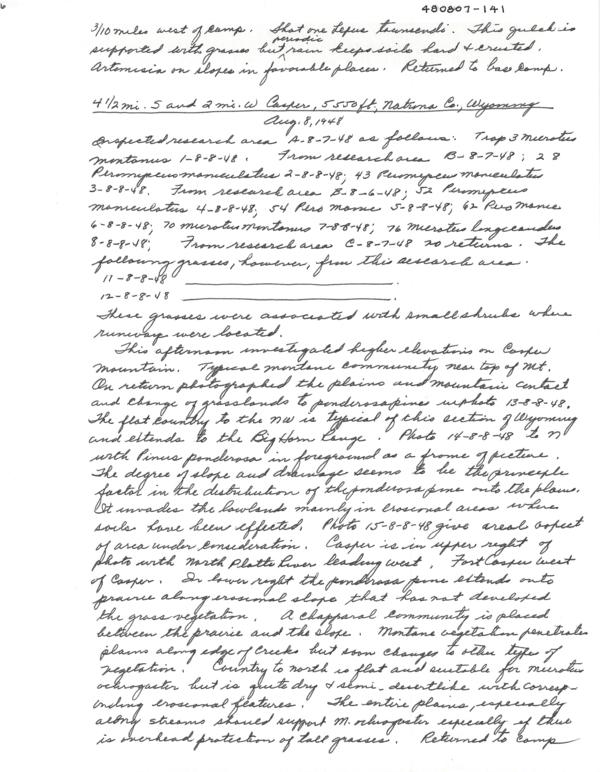 480807-141
3/10 miles west of camp. Shot one Lepus townsendi. This gulch is
supported with grasses but periodic rain keeps soils hard & crusted.
Artemisia on slopes in favorable places. Returned to base camp.
4 1/2 mi. S and 2 mi. W Casper, 5550 ft, Natrona Co., Wyoming
Aug. 8, 1948
Inspected research area A-8-7-48 as follows: Trap 3 Microtus
montanus 1-8-8-48. From research area B-8-7-48; 28
Peromyscus maniculatus 2-8-8-48; 43 Peromyscus maniculatus
3-8-8-48. From research area B-8-6-48; 52 Peromyscus
maniculatus 4-8-8-48; 54 Pero manic 5-8-8-48; 62 Pero manic
6-8-8-48; 70 microtus montanus 7-8-8-48; 76 Microtus longicaudus
8-8-8-48; From research area C-8-7-48 no returns. The
following grasses, however, from this research area.
11-8-8-48
12-8-8-48
These grasses were associated with small shrubs where
runways were located.
This afternoon investigated higher elevations on Casper
Mountain. Typical montane community near top of Mt.
On return photographed the plains and mountain contact
and change of grasslands to ponderosa pine w photo 13-8-8-48.
The flat country to the NW is typical of this section of Wyoming
and extends to the Big Horn Range. Photo 14-8-8-48 to N
with Pinus ponderosa in foreground as a frame of picture.
The degree of slope and drainage seems to be the principle
factor in the distribution of the ponderosa pine onto the plains.
It invades the lowlands mainly in erosional areas where
soils have been effected. Photo 15-8-8-48 give areal aspect
of area under consideration. Casper is in upper right of
photo with North Platte River leading west. Fort Casper west
of Casper. In lower right the ponderosa pine extends onto
prairie along erosional slope that has not developed
the grass vegetation. A chapparal community is placed
between the prairie and the slope. Montane vegetation penetrates
plains along edge of creeks but soon changes to other type of
vegetation. Country to north is flat and suitable for microtus
ochrogaster but is quite dry & semi-desertlike with corresp-
onding erosional features. The entire plains, especially
along streams should support M. ochrogaster especially if there
is overhead protection of tall grasses. Returned to camp